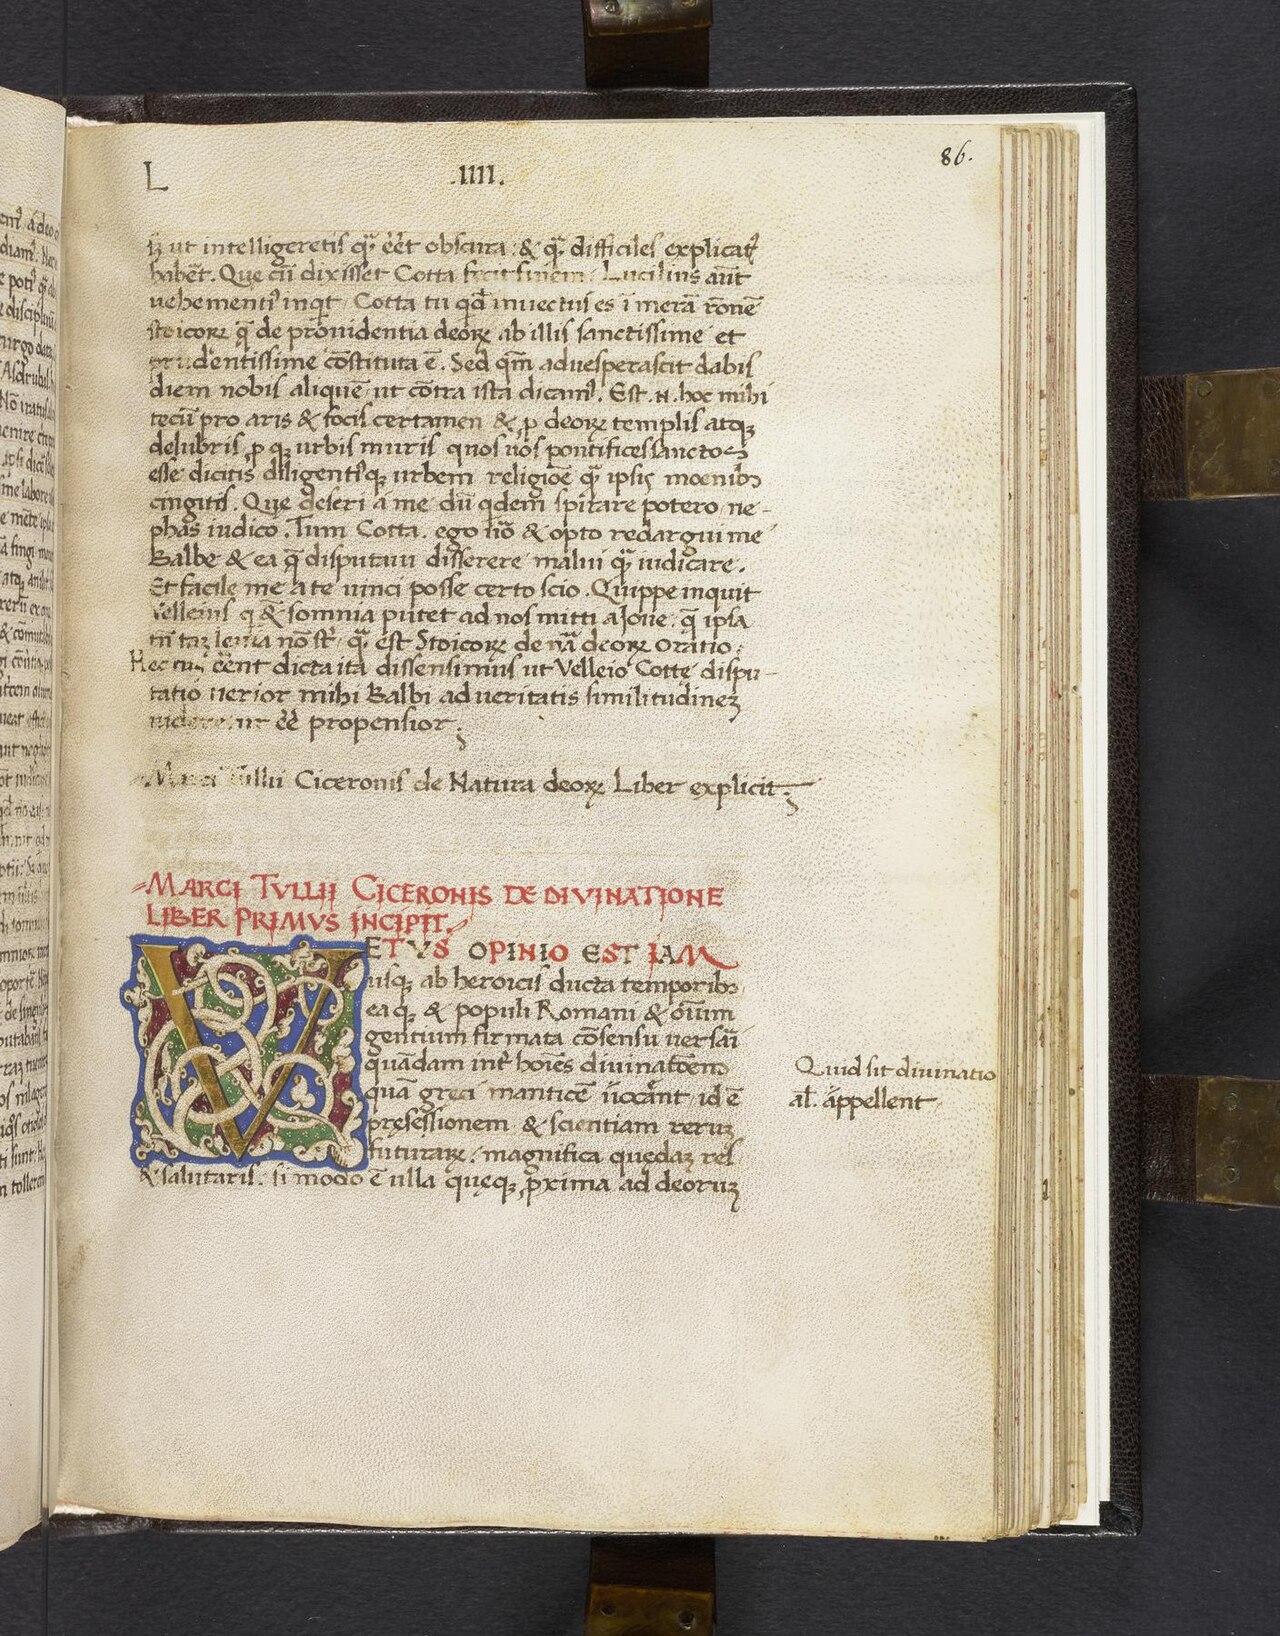 L .IIII. 86.
ut intelligeretis q̃ eēt obscura & q̃ difficiles explicatꝰ
habēt. Que cū dixisset Cotta fecit finem. Lucilius aūt
uehementiꝰ inqt Cotta tu qd̄ inuectus es ī merā rōnē
stoicoꝝ q̄ de prouidentia deoꝝ ab illis sanctissime et
prudentissime cōstituta ē. Sed qm̄ aduesperascit dabis
diem nobis aliquē ut cōtra ista dicamꝰ. Est .N. hoc mihi
tecū pro aris & focis certamen & ꝓ deoꝝ templis atqꝫ
delubris ꝓ qꝫ urbis muris quos uos pontifices sanctos
esse dicitis diligentiꝰqꝫ urbem religiōe q̃ ipsis moenibꝫ
cingitis. Que deseri a me dū qdem spirare potero ne-
phas iudico. Tum Cotta. ego uō & opto redargui me
Balbe & ea q̄ disputaui disserere malui q̃ iudicare.
Et facile me a te uinci posse certo scio. Quippe inquit
Velleius q & somnia putet ad nos mitti a Ioue. q̄ ipsa
tn̄ tā leuia nō st̄. q̃ est Stoicoꝝ de nā deoꝝ oratio.
Hec cum eēnt dicta ita dissensimus ut Velleio Cotte dispu-
tatio uerior mihi Balbi ad ueritatis similitudineꝫ
uidere.ur eē propensior;
Marci Tullii Ciceronis de Natura deoꝝ Liber explicit;
MARCI TVLLII CICERONIS DE DIVINATIONE
LIBER PRIMVS INCIPIT.
VETVS OPINIO EST IAM
usqꝫ ab heroicis ducta temporibꝫ
ea qꝫ & populi Romani & oīum
gentium firmata cōsensu uersari
quādam int̄ hoīes diuinatōem
quā greci manticē uocant id ē
presessionem & scientiam reruꝫ
futuraꝝ. magnifica quedaꝫ res
& salutaris. si modo ē ulla quęqꝫ ꝓxima ad deoruꝫ
Quid sit diuinatio
al. appellent